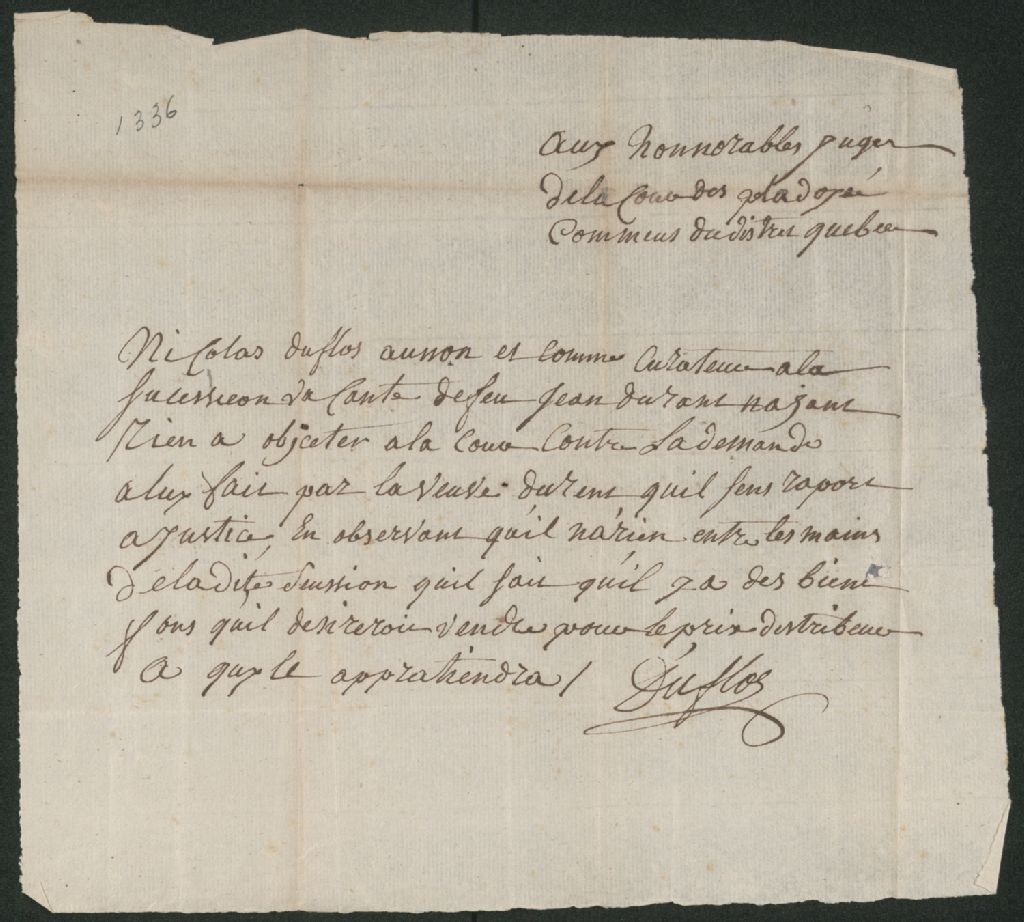 1336
aux honnorables juges
de la Cour des pladoyé
Commeus du distret quebec
Nicolas duflos aunon et comme Curateur a la
sucession va Cante de feu jean durant najant
Rien a objecter a la Cour Contre La demande
a luy fait par la veuve durent quil sens raport
a justice, En observant qu'il na rien entre les mains
de la dite seussion quil sait qu'il y a des biens
fons quil desireroit vendre pour le prix distribeur
a quy le appratiendra /
Duflos